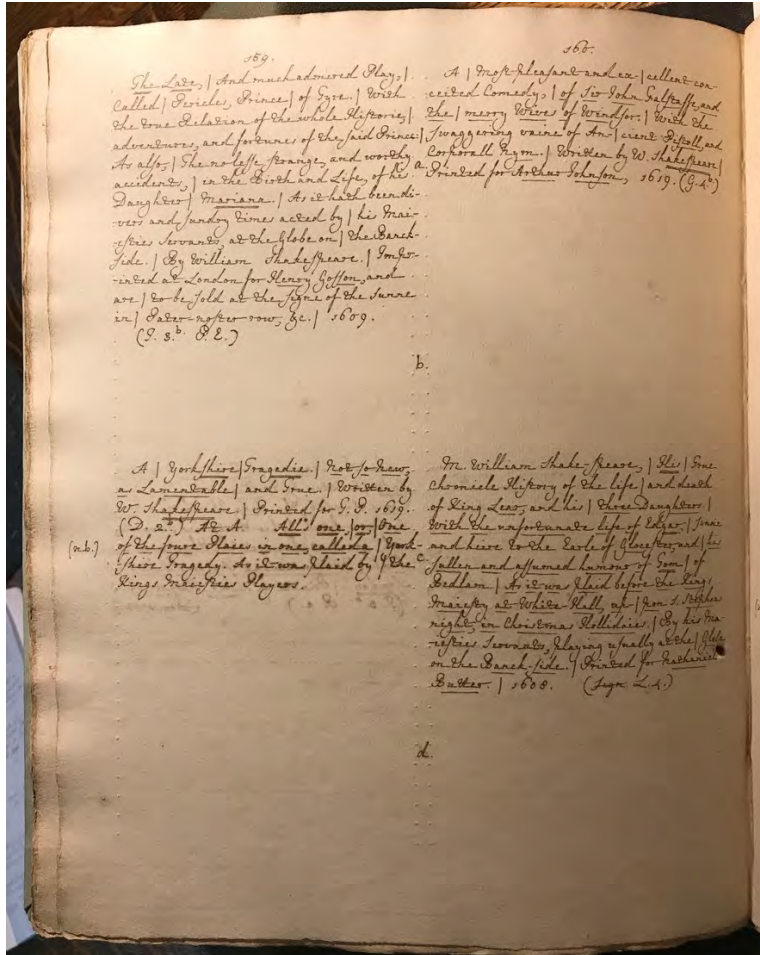 159.
The Late, | And much admired Play, |
Called | Pericles, Prince | of Tyre. | With
the true Relation of the whole Historie, |
adventures, and fortunes of the said Prince:
As also, | The no lesse strange, and worthy
accidents, | in the Birth and Life, of his
Daughter | Mariana. | As it hath been di-
vers and sundry times acted by | his Mai-
esties Servants, at the Globe on | the Banck-
side. | By William Shakespeare. | Impr-
inted at London for Henry Gosson, and
are | to be sold at the signe of the Sunne
in | Pater-noster row, &c. | 1609.
(I. 3.b P. E.)
160.
A | Most pleasant and ex- | cellent con-
ceited Comedy, | of Sir John Falstaffe, and
the | merry Wives of Windsor. | With the
swaggering vaine of An- | cient Pistoll, and
Corporall Nym. | Written by W. Shakespeare |
Printed for Arthur Johnson, 1619. (G. 4.b)
a.
b.
A | Yorkshire | Tragedie. | Not so New,
as Lamentable | and True. | Written by
W. Shakespeare | Printed for T. P. 1619.
(D. 2.b) At A. All's one, | or | One
(n.b.) of the foure Plaies in one, called a | York-
shire Tragedy. As it was plaid by | the
Kings Maiesties Players.
M. William Shake-speare, | His | True
Chronicle History of the life | and death
of King Lear, and his | three Daughters |
With the unfortunate life of Edgar, | sonne
and heire to the Earle of Glocester, and | his
sullen and assumed humour of Tom | of
Bedlam | As it was plaid before the Kings
Maiesty at White-Hall, up- | pon S. Stephens
night, in Christmas Hollidaies. | By his Ma-
iesties Servants, playing usually at the | Globe
on the Banck-side. | Printed for Nathaniel
Butter. | 1608. (Sign. L. 4.)
c.
d.